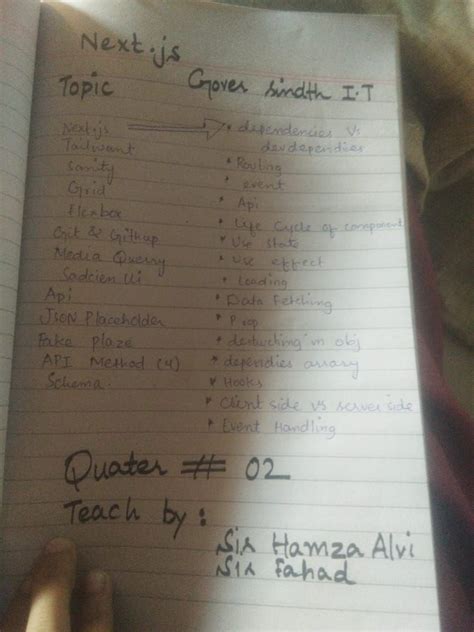 Next.js
Topic
Gover sindth I.T
Next.js
Tailwant
Sanity
Grid
Flexbox
Git & Githup
Media Querry
Sadcien Ui
Api
JSON Placeholder
Fake Plaze
API Method (4)
Schema.
* dependencies Vs
devdependies
* Routing
* event
* Api
* Life Cycle of component
* Use State
* Use effect
* Loading
* Data Fetching
* Prop
* destucturing in obj
* dependies array
* Hooks
* Client side vs server side
* Event Handling
Quater # 02
Teach by :
Sir Hamza Alvi
Sir Fahad